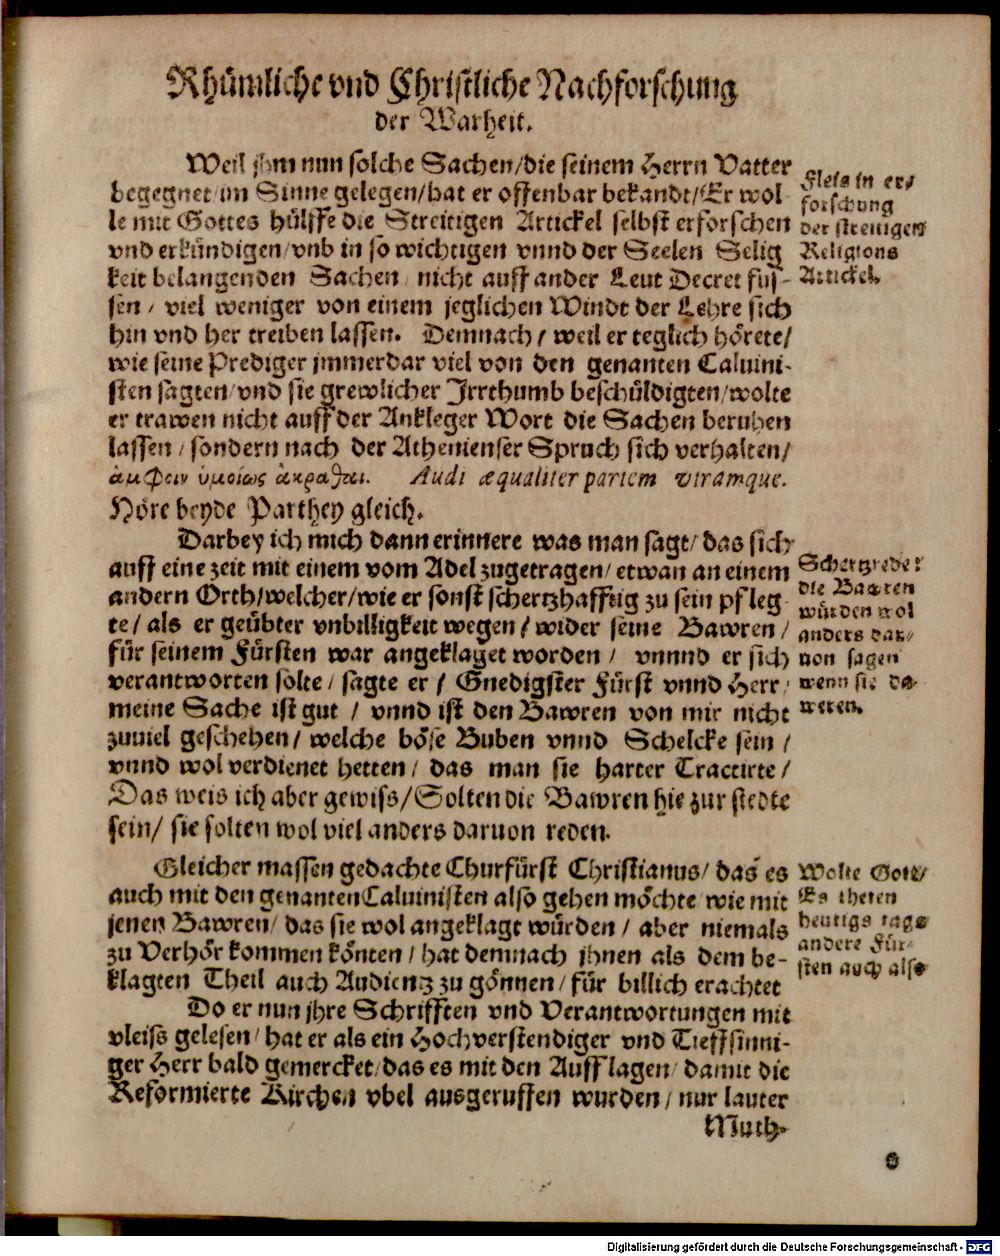 Rhümliche vnd Christliche Nachforschung
der Warheit.
Weil jhm nun solche Sachen/die seinem Herrn Vatter
begegnet/im Sinne gelegen/hat er offenbar bekandt/Er wol-
le mit Gottes hülffe die Streitigen Artickel selbst erforschen
vnd erkündigen/vnb in so wichtigen vnnd der Seelen Selig
keit belangenden Sachen/ nicht auff ander Leut Decret fus-
sen/ viel weniger von einem jeglichen Windt der Lehre sich
hin vnd her treiben lassen. Demnach/ weil er teglich hörete/
wie seine Prediger jmmerdar viel von den genanten Caluini-
sten sagten/vnd sie grewlicher Jrrthumb beschüldigten/wolte
er trawen nicht auff der Ankleger Wort die Sachen beruhen
lassen/sondern nach der Athenienser Spruch sich verhalten/
ἀμφειν ὁμοίως ἀκραθαι. Audi æqualiter partem vtramque.
Höre beyde Parthey gleich.
Fleis in er-
forschung
der streitigen
Religions
Artickel.
Darbey ich mich dann erinnere was man sagt/das sich
auff eine zeit mit einem vom Adel zugetragen/etwan an einem
andern Orth/welcher/wie er sonst schertzhafftig zu sein pfleg-
te/als er geübter vnbilligkeit wegen/wider seine Bawren/
für seinem Fürsten war angeklaget worden/ vnnnd er sich
verantworten solte/sagte er/ Gnedigster Fürst vnnd Herr/
meine Sache ist gut/ vnnd ist den Bawren von mir nicht
zuuiel geschehen/ welche böse Buben vnnd Schelcke sein/
vnnd wol verdienet hetten/ das man sie harter Tractirte/
Das weis ich aber gewiss/Solten die Bawren hie zur stedte
sein/ sie solten wol viel anders daruon reden.
Schertzrede:
die Bawren
würden wol
anders dar-
uon sagen
wenn sie da
weren.
Gleicher massen gedachte Churfürst Christianus/das es
auch mit den genanten Caluinisten also gehen möchte wie mit
jenen Bawren/das sie wol angeklagt würden/ aber niemals
zu Verhör kommen könten/hat demnach jhnen als dem be-
klagten Theil auch Audientz zu gönnen/für billich erachtet
Wolte Gott/
Es theten
heutigs tags
andere Für-
sten auch also
Do er nun jhre Schrifften vnd Verantwortungen mit
vleiss gelesen/hat er als ein Hochverstendiger vnd Tieffsinni-
ger Herr bald gemercket/das es mit den Aufflagen/damit die
Reformierte Kirchen vbel ausgeruffen wurden/nur lauter
Muth-
Digitalisierung gefördert durch die Deutsche Forschungsgemeinschaft - DFG